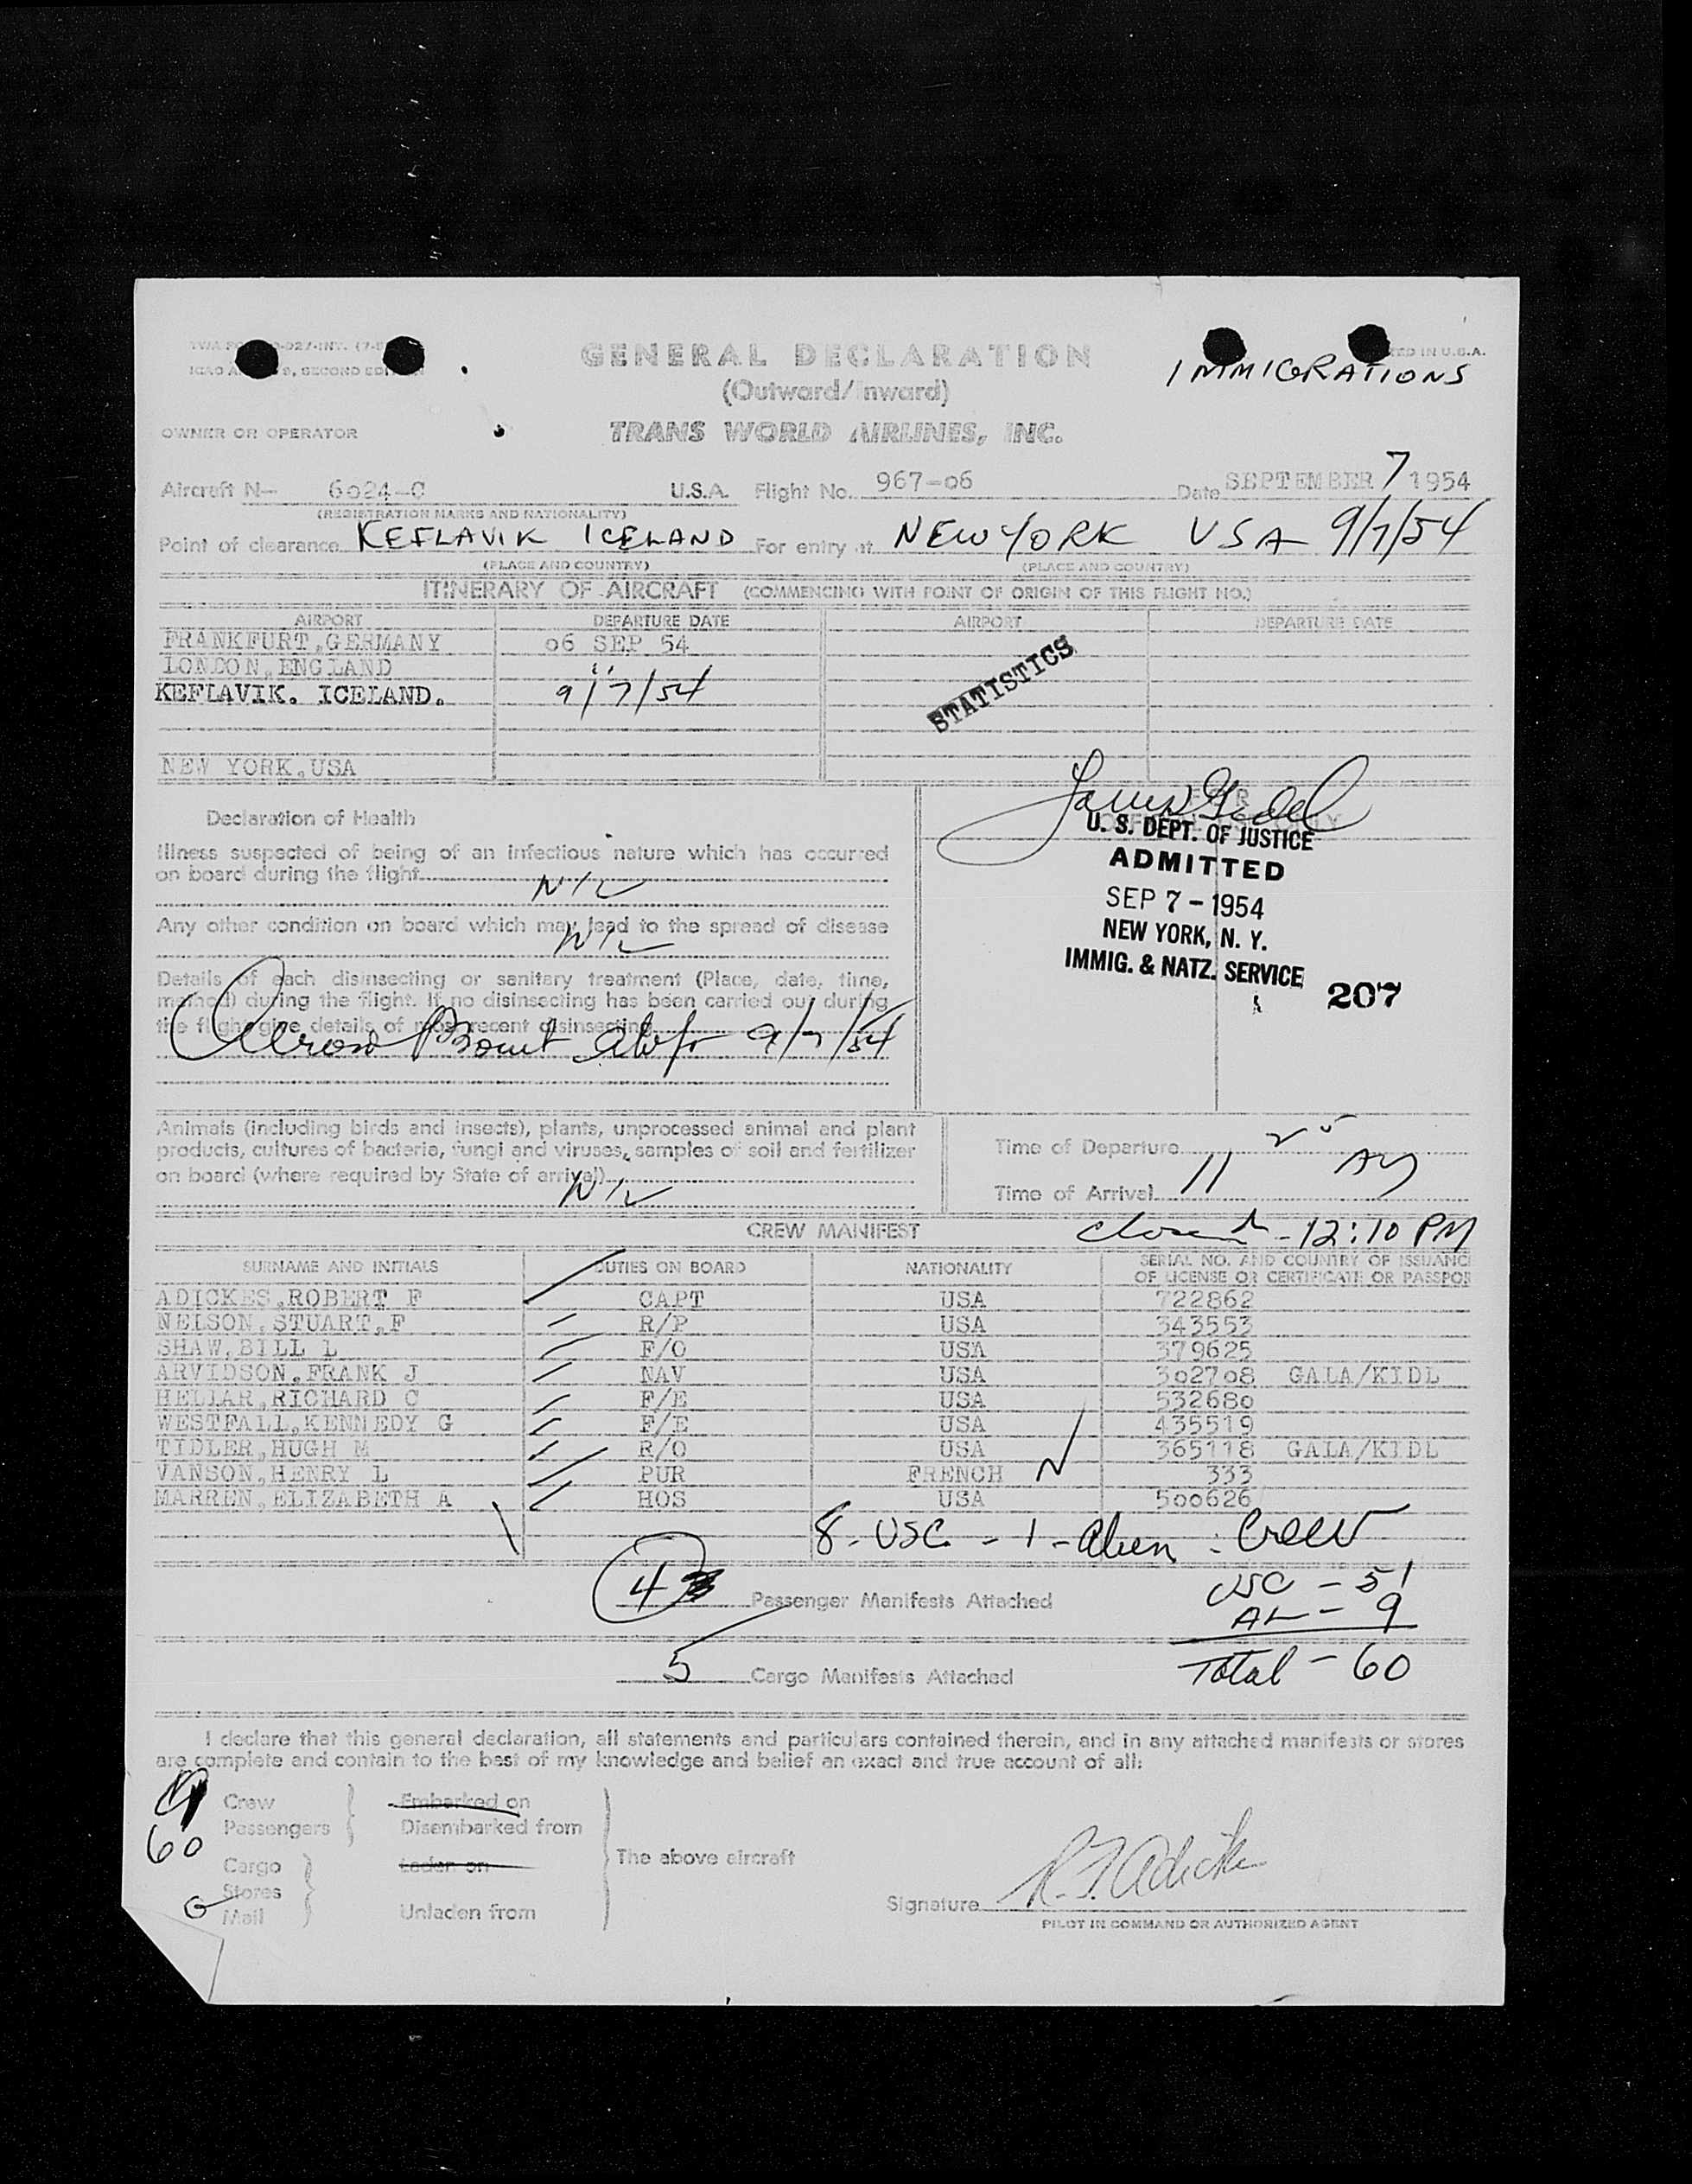 GENERAL DECLARATION
(Outward/Inward)
IMMIGRATIONS
OWNER OR OPERATOR
TRANS WORLD AIRLINES, INC.
Aircraft N— 6024-C U.S.A. Flight No. 967-06 Date SEPTEMBER 7 1954
(REGISTRATION MARKS AND NATIONALITY)
Point of clearance KEFLAVIK ICELAND For entry at NEW YORK USA 9/7/54
(PLACE AND COUNTRY) (PLACE AND COUNTRY)
ITINERARY OF AIRCRAFT (COMMENCING WITH POINT OF ORIGIN OF THIS FLIGHT NO.)
AIRPORT DEPARTURE DATE AIRPORT DEPARTURE DATE
FRANKFURT,GERMANY 06 SEP 54
LONDON,ENGLAND "
KEFLAVIK. ICELAND. 9/7/54
STATISTICS
NEW YORK,USA
Declaration of Health
Illness suspected of being of an infectious nature which has occurred
on board during the flight NIL
Any other condition on board which may lead to the spread of disease
NIL
Details of each disinsecting or sanitary treatment (Place, date, time,
method) during the flight. If no disinsecting has been carried out during
the flight give details of most recent disinsecting
9/7/54
U. S. DEPT. OF JUSTICE
ADMITTED
SEP 7 - 1954
NEW YORK, N. Y.
IMMIG. & NATZ. SERVICE 207
Animals (including birds and insects), plants, unprocessed animal and plant
products, cultures of bacteria, fungi and viruses, samples of soil and fertilizer
on board (where required by State of arrival) NIL
Time of Departure
Time of Arrival 11 25 AM
CREW MANIFEST closed - 12:10 PM
SURNAME AND INITIALS DUTIES ON BOARD NATIONALITY SERIAL NO. AND COUNTRY OF ISSUANC
OF LICENSE OR CERTIFICATE OR PASSPOR
ADICKES,ROBERT F CAPT USA 722862
NELSON,STUART,F R/P USA 343553
SHAW,BILL L F/O USA 379625
ARVIDSON,FRANK J NAV USA 302708 GALA/KIDL
HELLAR,RICHARD C F/E USA 532680
WESTFALL,KENNEDY G F/E USA 435519
TIDLER,HUGH M R/O USA 365118 GALA/KIDL
VANSON,HENRY L PUR FRENCH 333
MARREN,ELIZABETH A HOS USA 500626
8 - USC - 1 - alien : Crew
4 Passenger Manifests Attached
USC - 51
AL - 9
5 Cargo Manifests Attached
Total - 60
I declare that this general declaration, all statements and particulars contained therein, and in any attached manifests or stores
are complete and contain to the best of my knowledge and belief an exact and true account of all:
9 Crew Embarked on
60 Passengers Disembarked from
Cargo Laden on The above aircraft
Stores
Mail Unladen from
Signature R. F. Adickes
PILOT IN COMMAND OR AUTHORIZED AGENT